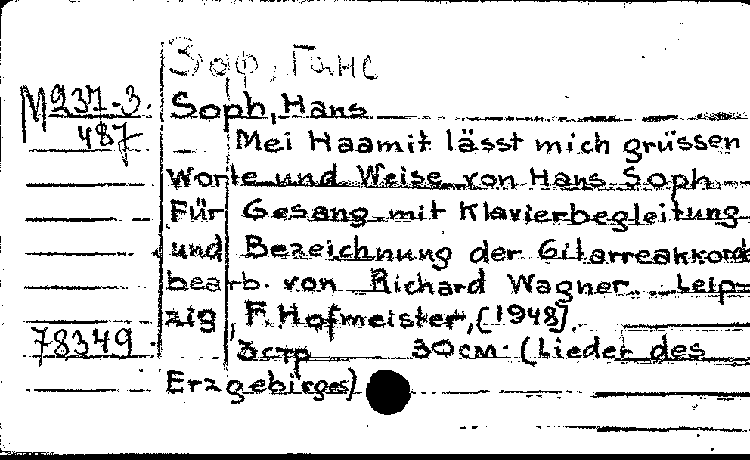 Зоф, Ганс
М 237-3
487
Soph, Hans
Mei Haamit lässt mich grüssen
Worte und Weise von Hans Soph
Für Gesang mit Klavierbegleitung
und Bezeichnung der Gitarreakkord
bearb. von Richard Wagner. Leip-
zig, F. Hofmeister, [1948].
78349
3стр 30см. (Lieder des
Erzgebirges)